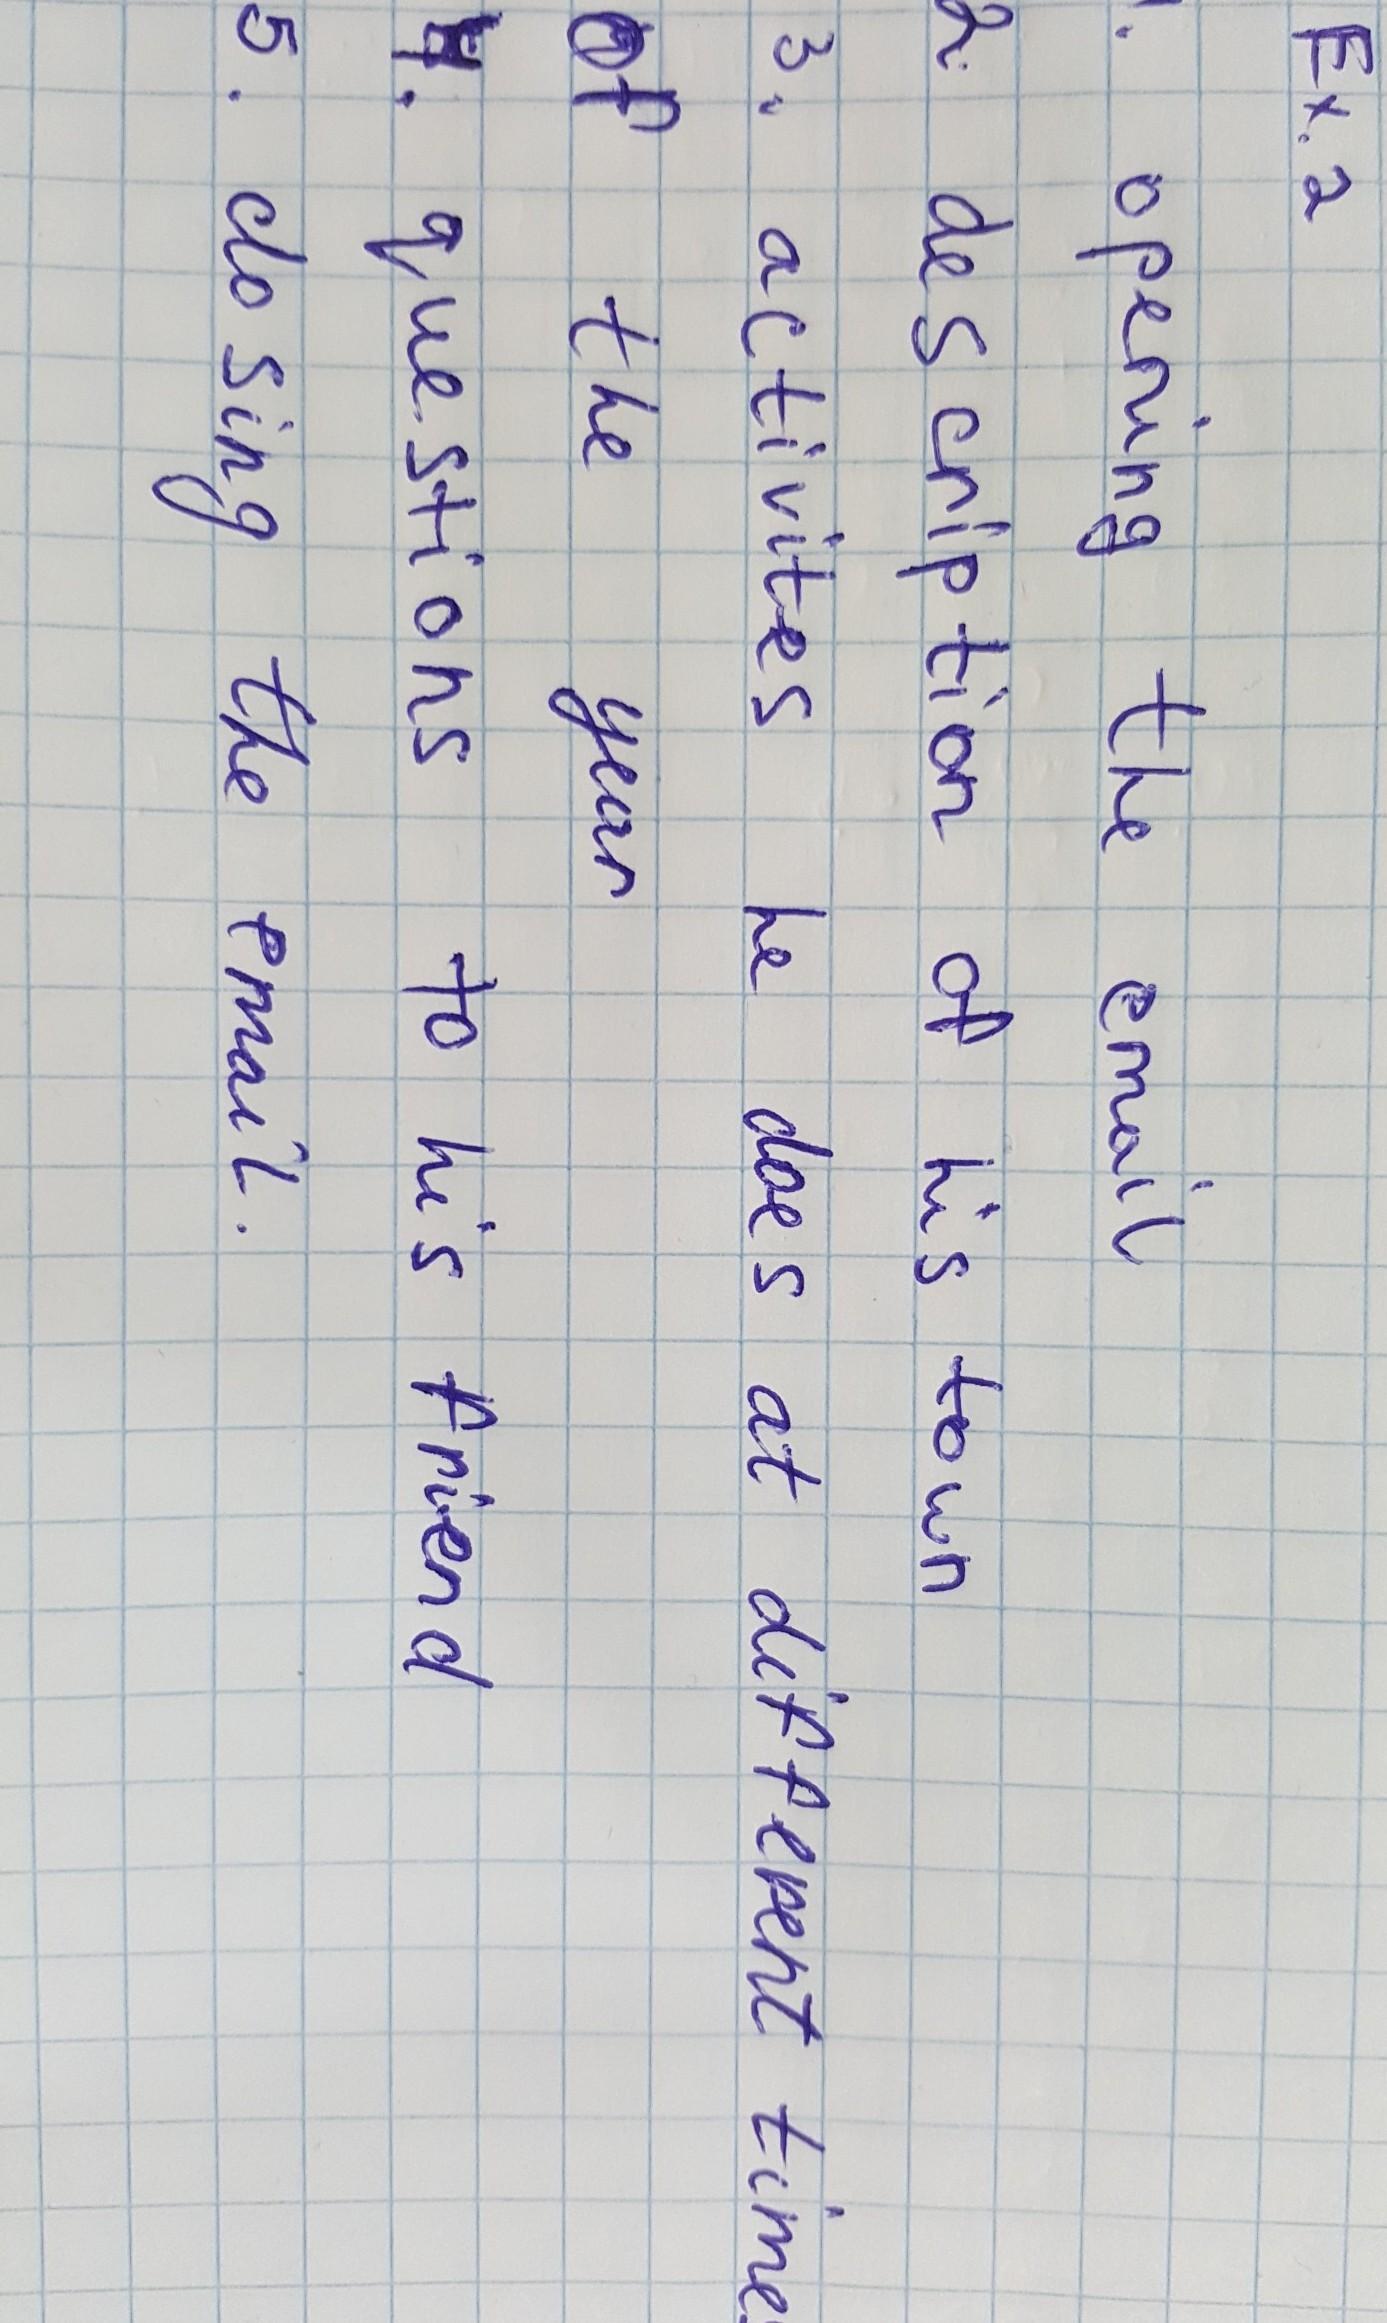 Ex. 2
1. opening the email
2. description of his town
3. activites he does at different times
of the year
4. questions to his friend
5. closing the email.